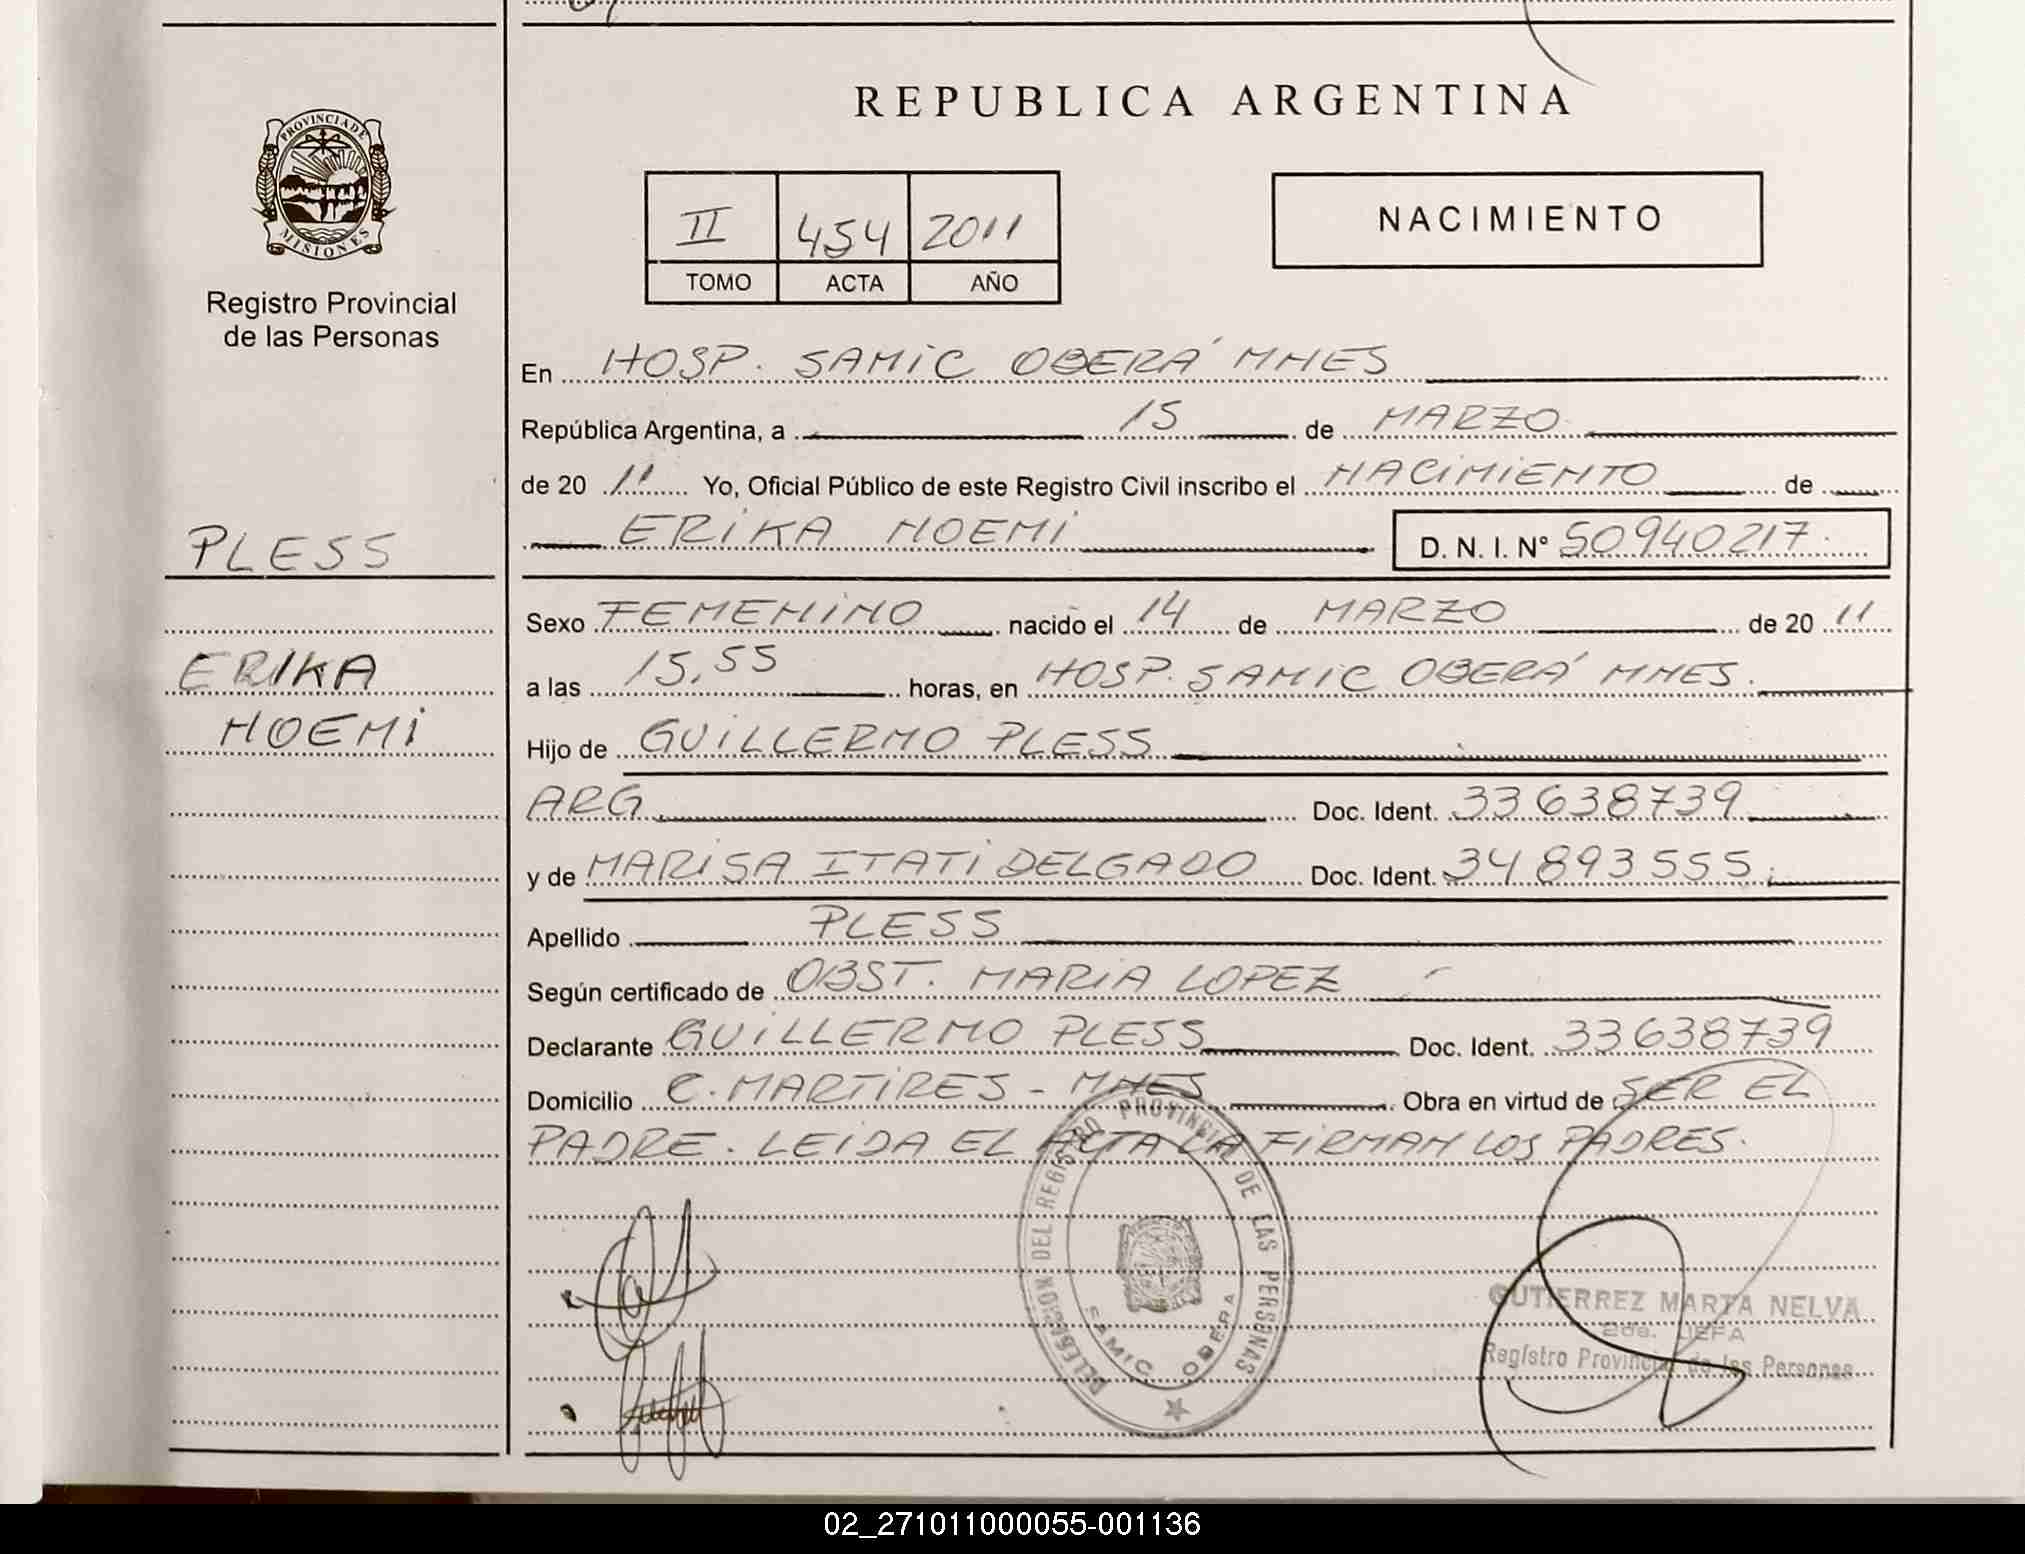 REPUBLICA ARGENTINA
PROVINCIA DE
MISIONES
Registro Provincial
de las Personas
II 454 2011
TOMO ACTA AÑO
NACIMIENTO
En HOSP. SAMIC OBERÁ MNES
República Argentina, a 15 de MARZO
de 20 11 Yo, Oficial Público de este Registro Civil inscribo el NACIMIENTO de
ERIKA NOEMI D. N. I. Nº 50940217
PLESS
Sexo FEMENINO nacido el 14 de MARZO de 20 11
ERIKA
a las 15,55 horas, en HOSP. SAMIC OBERÁ MNES.
NOEMI
Hijo de GUILLERMO PLESS
ARG Doc. Ident. 33638739
y de MARISA ITATI DELGADO Doc. Ident. 34893555
Apellido PLESS
Según certificado de OBST. MARIA LOPEZ
Declarante GUILLERMO PLESS Doc. Ident. 33638739
Domicilio C. MARTIRES - MNES Obra en virtud de SER EL
PADRE. LEIDA EL ACTA LA FIRMAN LOS PADRES.
DELEGACION DEL REGISTRO PROVINCIAL DE LAS PERSONAS
SAMIC OBERA
GUTIERREZ MARTA NELVA
2da. JEFA
Registro Provincial de las Personas
02_271011000055-001136